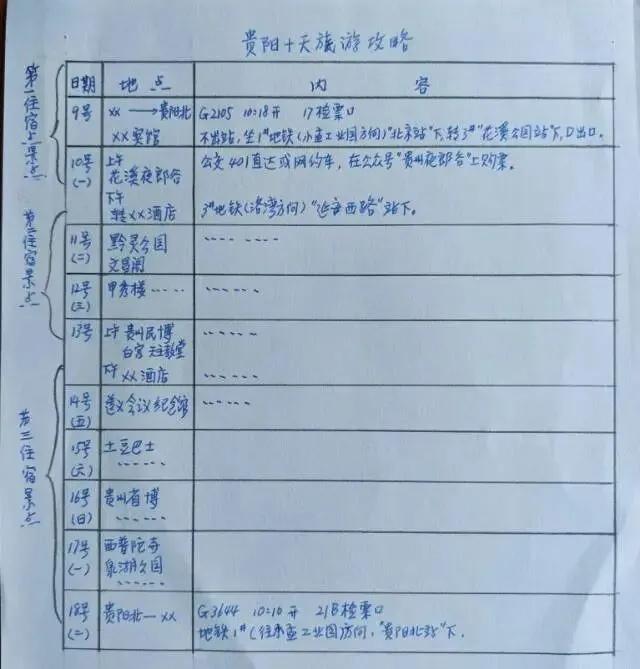 贵阳十天旅游攻略
日期 地点 内容
第一住宿点景点
9号 xx → 贵阳北 G2105 10:18开 17检票口
xx宾馆 不出站，坐1#地铁(小孟工业园方向)"北京站"下，转3#"花溪公园站"下，D出口。
10号 上午 公交401直达或网约车，在公众号"贵州夜郎谷"上购票。
(一) 花溪夜郎谷
下午
转xx酒店 3#地铁(洛湾方向)"延安西路"站下。
第二住宿景点
11号 黔灵公园
(二) 文昌阁
12号 甲秀楼
(三)
13号 上午 贵州民博
白宫 天主教堂
下午 xx酒店
第三住宿景点
14号 遵义会议纪念馆
(五)
15号 土豆巴士
(六)
16号 贵州省博
(日)
17号 西普陀寺
(一) 泉湖公园
18号 贵阳北—xx G3644 10:10开 21B检票口
(二) 地铁1#(往小孟工业园方向，"贵阳北站"下.